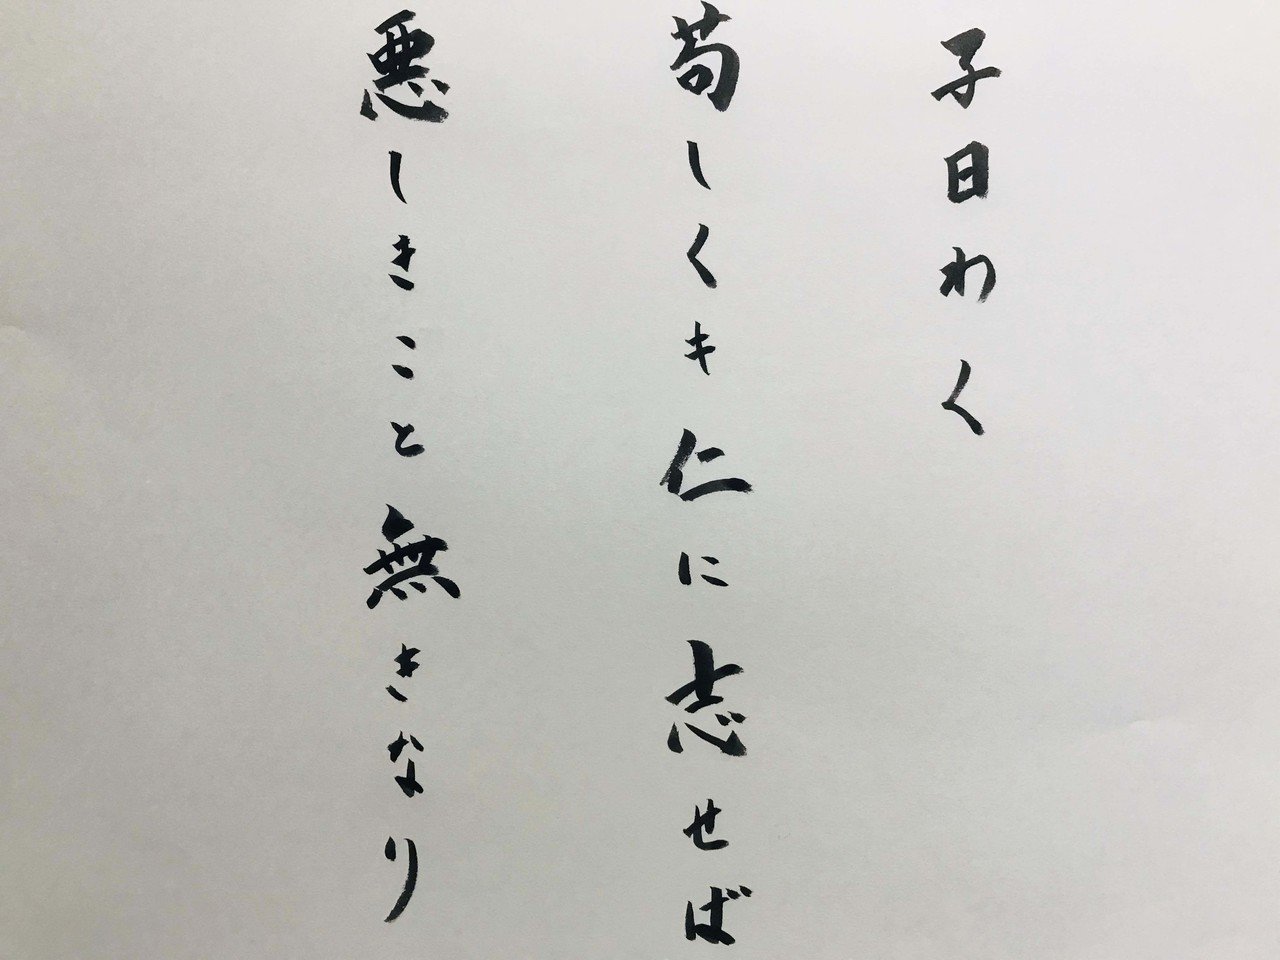 子曰わく
苟しくも仁に志せば
悪しきこと無きなり